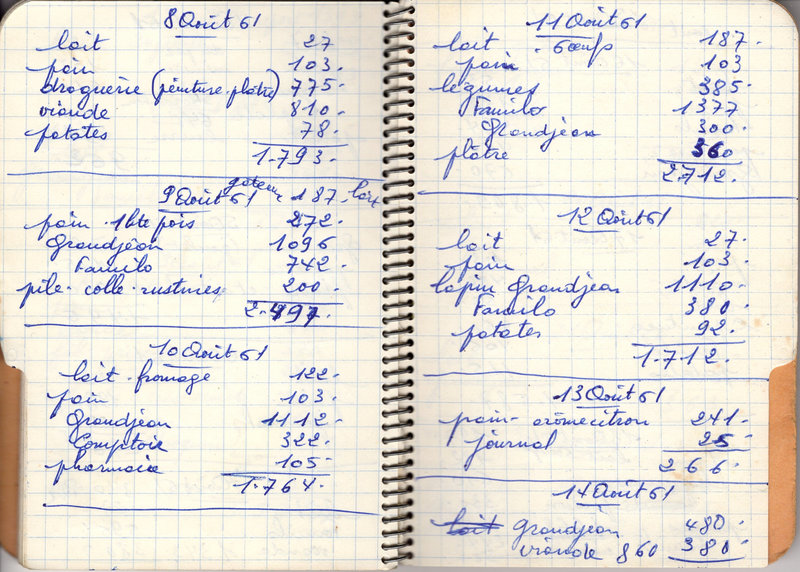 8 Août 61
lait 27
pain 103.
droguerie (peinture. plâtre) 775-
viande 810-
patates 78.
1.793.
9 Août 61 gateau 187. lait
pain. 1 bte pois 272.
Grandjean 1096
Familo 742-
pile. colle. rustines 200.
2.497.
10 Août 61
lait. fromage 122.
pain 103.
Grandjean 1112.
Comptoir 322.
pharmacie 105.
1.764.
11 Août 61
lait. 6 œufs 187.
pain 103
légumes 385.
Familo 1377
Grandjean 300.
plâtre 360
2712.
12 Août 61
lait 27.
pain 103.
lapin Grandjean 1110.
Familo 380.
patates 92.
1.712.
13 Août 61
pain - arôme citron 241.
journal 25
266.
14 Août 61
lait grandjean 480.
viande 860 380.